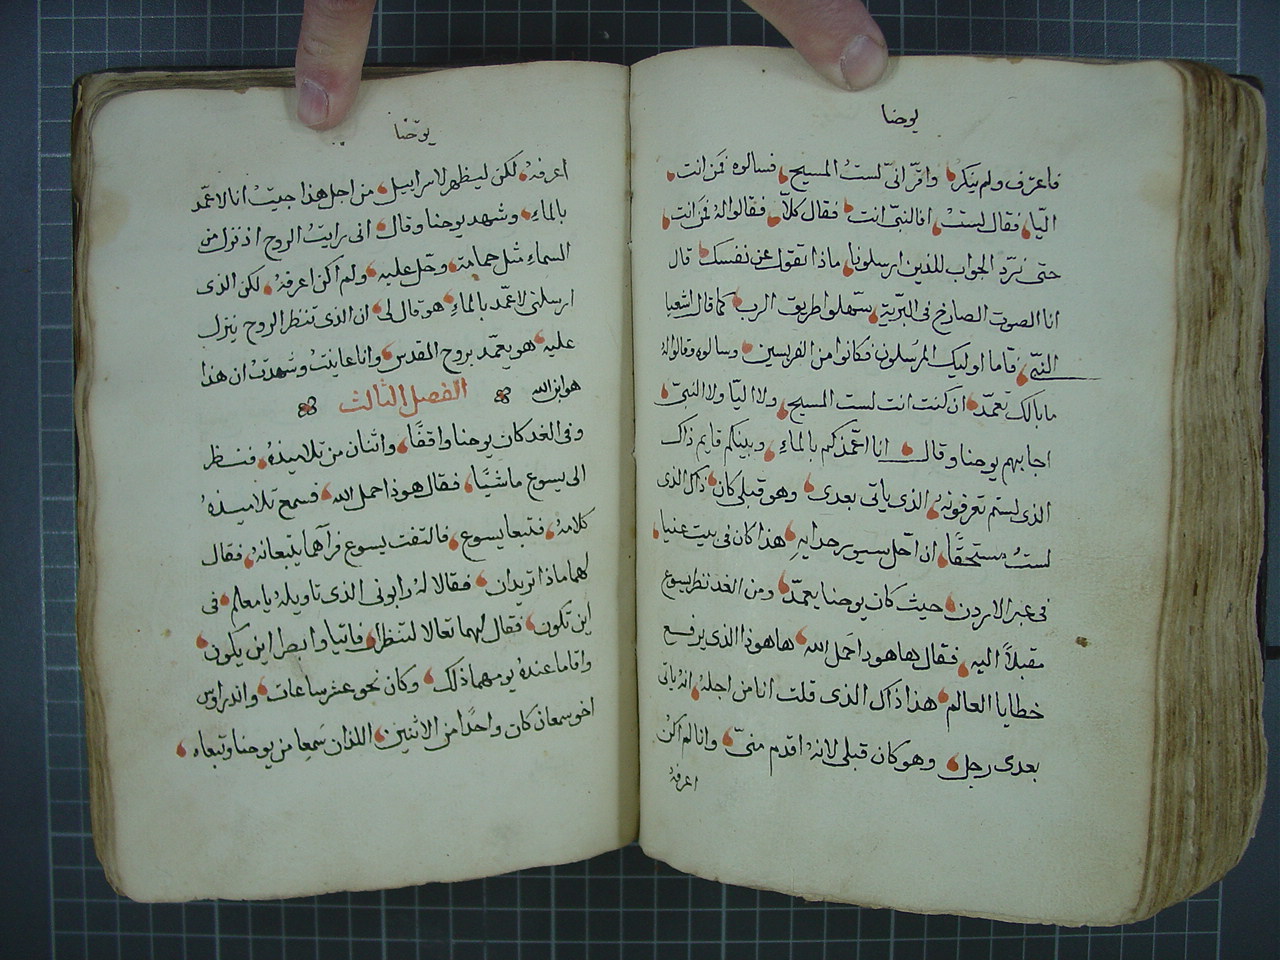 يوحنا
فاعترف ولم ينكر واقرّ انى لستُ المسيح فسالوه فمَن انت
اليّا فقال لستُ افالنبىّ انت فقال كلّا فقالوا لهُ فمَن انت
حتى نرّد الجواب للذين ارسلونا ماذا تقول عن نفسك قال
انا الصوت الصارخ فى البريّة سهّلوا طريق الرب كما قال اشعيا
النبىّ فاما اوليك المرسلون فكانوا من الفريسين وسالوه وقالوا لهُ
ما بالك تعمّد ان كنت انت لست المسيح ولا اليّا ولا النبىّ
اجابهم يوحنا وقال انا اعمّدكم بالماءِ وبينكم قايم ذاك
الذى لستم تعرفونهُ الذى ياتى بعدى وهو قبلى كان ذاك الذى
لستُ مستحقًا ان احّل سيور حذايهِ هذا كان فى بيت عنيا
فى عبر الاردن حيث كان يوحنا يعمّد ومن الغد نظر يسوع
مقبلاً اليه فقال ها هوذا حَمل الله ها هوذا الذى يرفع
خطايا العالم هذا ذاك الذى قلت انا من اجلهِ انهُ ياتى
بعدى رجل وهو كان قبلى لانهُ اقدم منىّ وانا لم اكن
اعرفهُ
يوحّنا
اعرفهُ لكن ليظهر لاسراييل من اجل هذا جيتُ انا لاعمّد
بالماءِ وشهد يوحنا وقال انى رايتُ الروح اذ نزل من
السماءِ مثل حمامة وحّل عليه ولم اكن اعرفهُ لكن الذى
ارسلنى لاعمّد بالماءِ هو قال لى ان الذى تنظر الروح ينزل
عليه هو يعمّد بروح القدس وانا عاينتُ وشهدتُ ان هذا
هو ابن الله الفصل الثالث
وفى الغد كان يوحنا واقفًا واثنان من تلاميذهُ فنظر
الى يسوع ماشيًا فقال هوذا حمل الله فسمع تلاميذهُ
كلامهُ فتبعا يسوع فالتفت يسوع فرآهما يتبعانهُ فقال
لهما ماذا تريدان فقالا لهُ رابونى الذى تاويلهُ يا معلم فى
اين تكون فقال لهما تعالا لتنظرا فاتيا وابصرا اين يكون
واقاما عندهُ يومهما ذلك وكان نحو عشر ساعات واندراوس
اخو سمعان كان واحدًا من الاثنين اللذان سَمعا من يوحنا وتبعاه